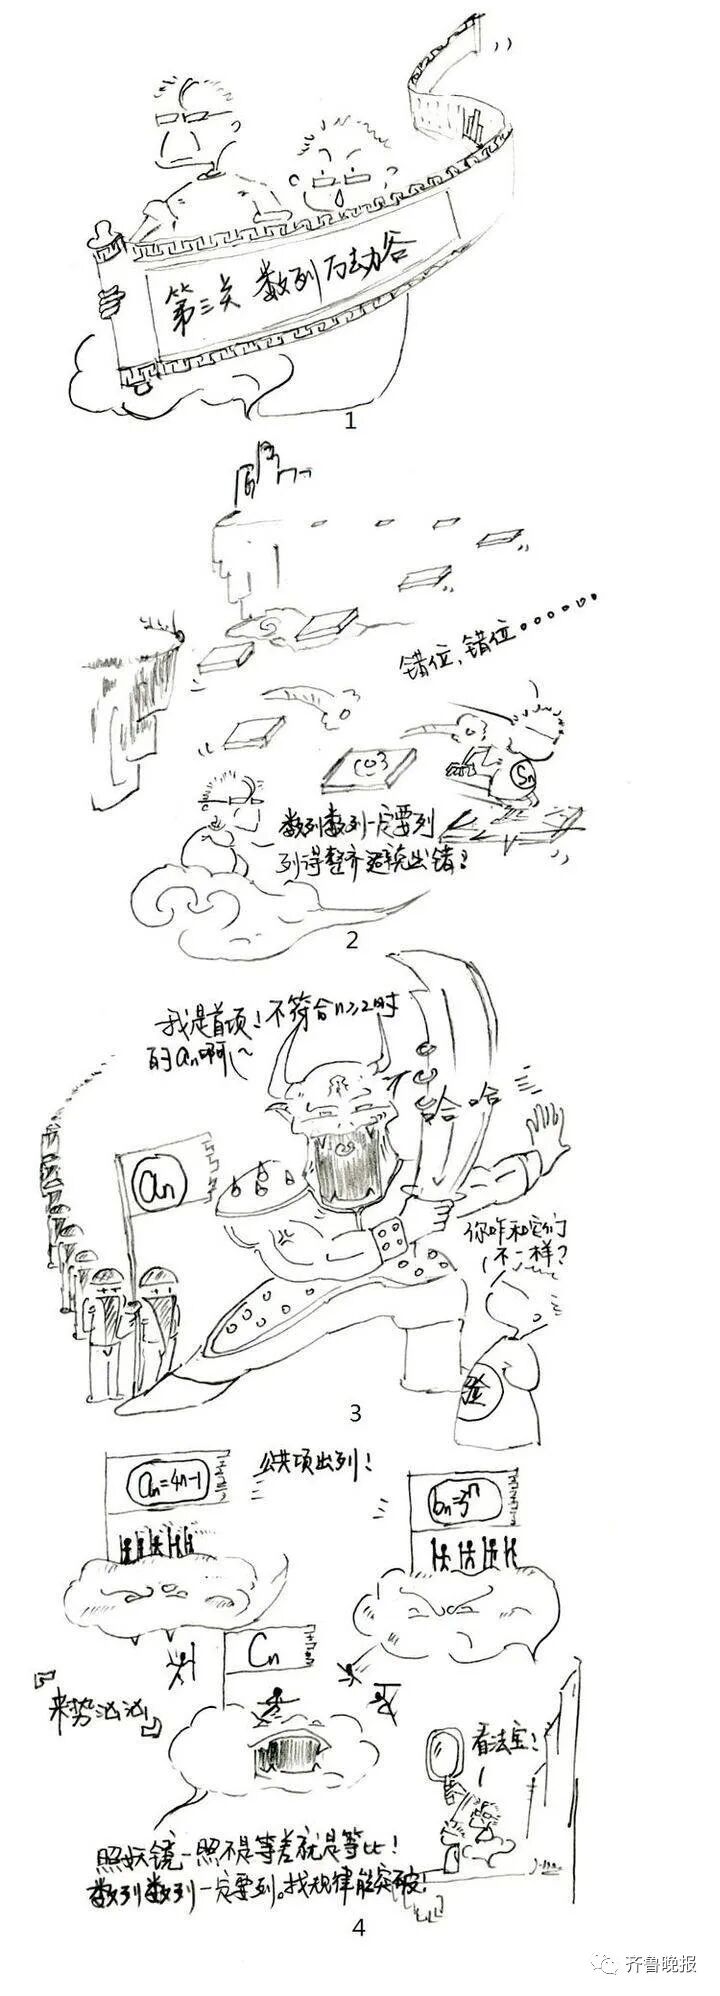 第三关 数列万劫谷
1
错位,错位......
Sn
数列数列一定要列
列得整齐避免出错!
2
我是首项!不符合n≥2时
的an啊~
哈哈
an
你咋和它们
不一样?
验
3
an=4n-1
公共项出列!
bn=3ⁿ
Cn
『来势汹汹』
看法宝!
照妖镜一照不是等差就是等比!
数列数列一定要列。找规律能突破!
4
齐鲁晚报